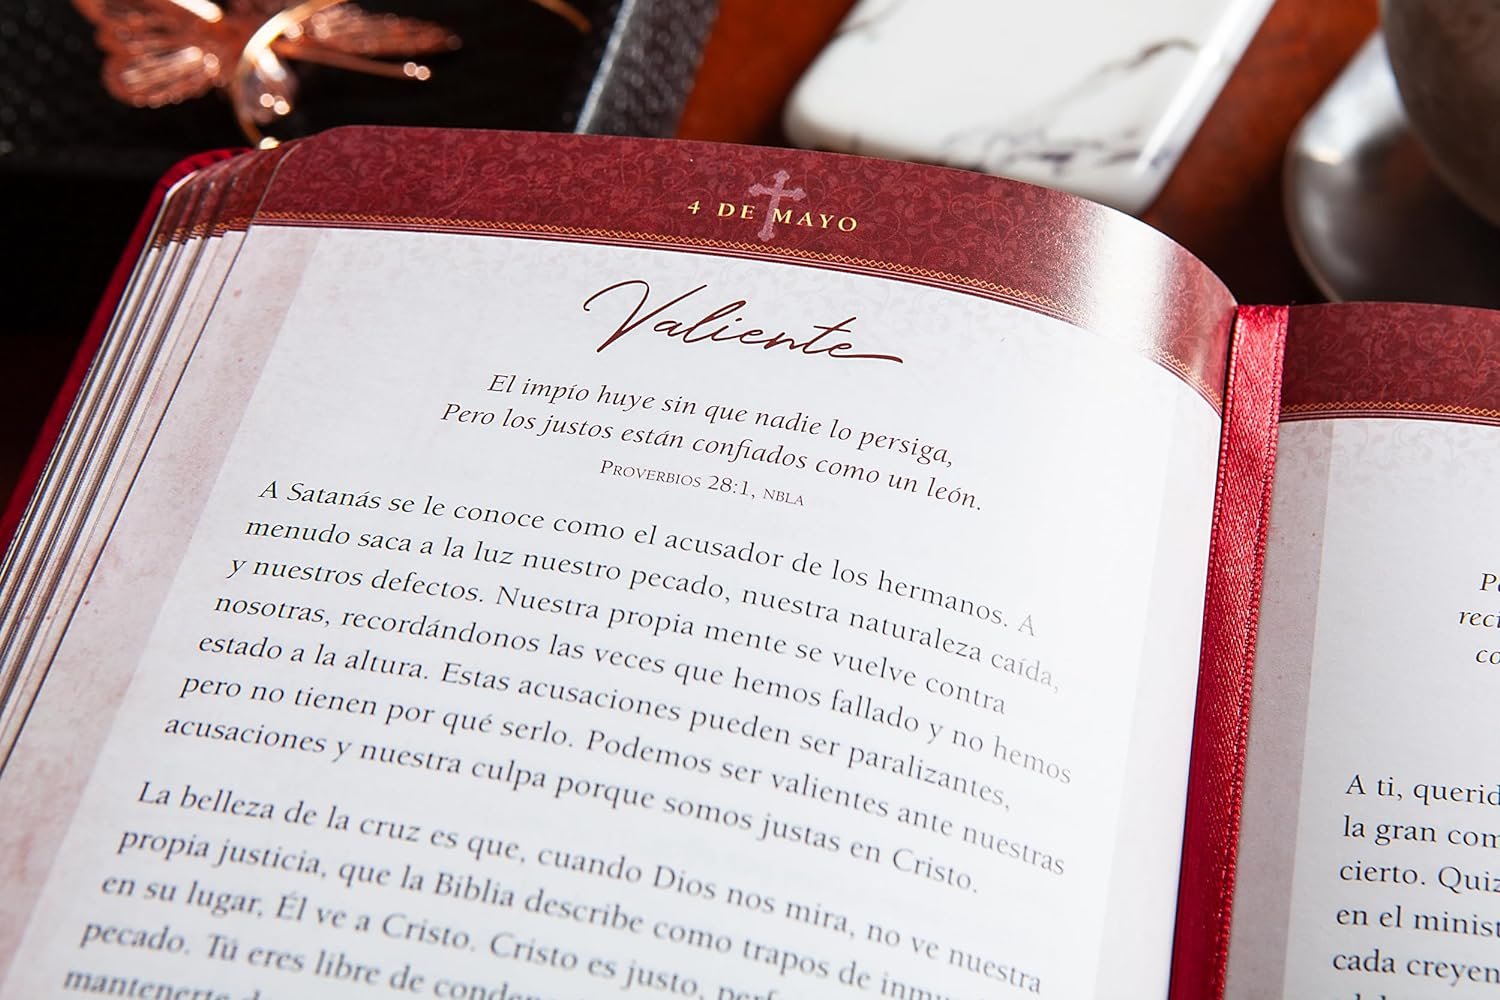 4 DE MAYO
Valiente
El impío huye sin que nadie lo persiga,
Pero los justos están confiados como un león.
PROVERBIOS 28:1, NBLA
A Satanás se le conoce como el acusador de los hermanos. A
menudo saca a la luz nuestro pecado, nuestra naturaleza caída,
y nuestros defectos. Nuestra propia mente se vuelve contra
nosotras, recordándonos las veces que hemos fallado y no hemos
estado a la altura. Estas acusaciones pueden ser paralizantes,
pero no tienen por qué serlo. Podemos ser valientes ante nuestras
acusaciones y nuestra culpa porque somos justas en Cristo.
La belleza de la cruz es que, cuando Dios nos mira, no ve nuestra
propia justicia, que la Biblia describe como trapos de inmu
en su lugar, Él ve a Cristo. Cristo es justo, perf
pecado. Tú eres libre de conden
mantenerte d
reci
co
A ti, querid
la gran com
cierto. Quiz
en el minist
cada creyen